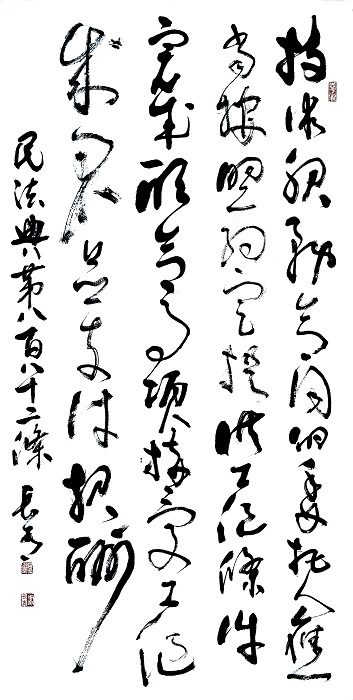 技術服務合同的委托人應
當按照約定提供工作條件
完成配合事項接受工作
成果並支付報酬
民法典第八百八十二條 長